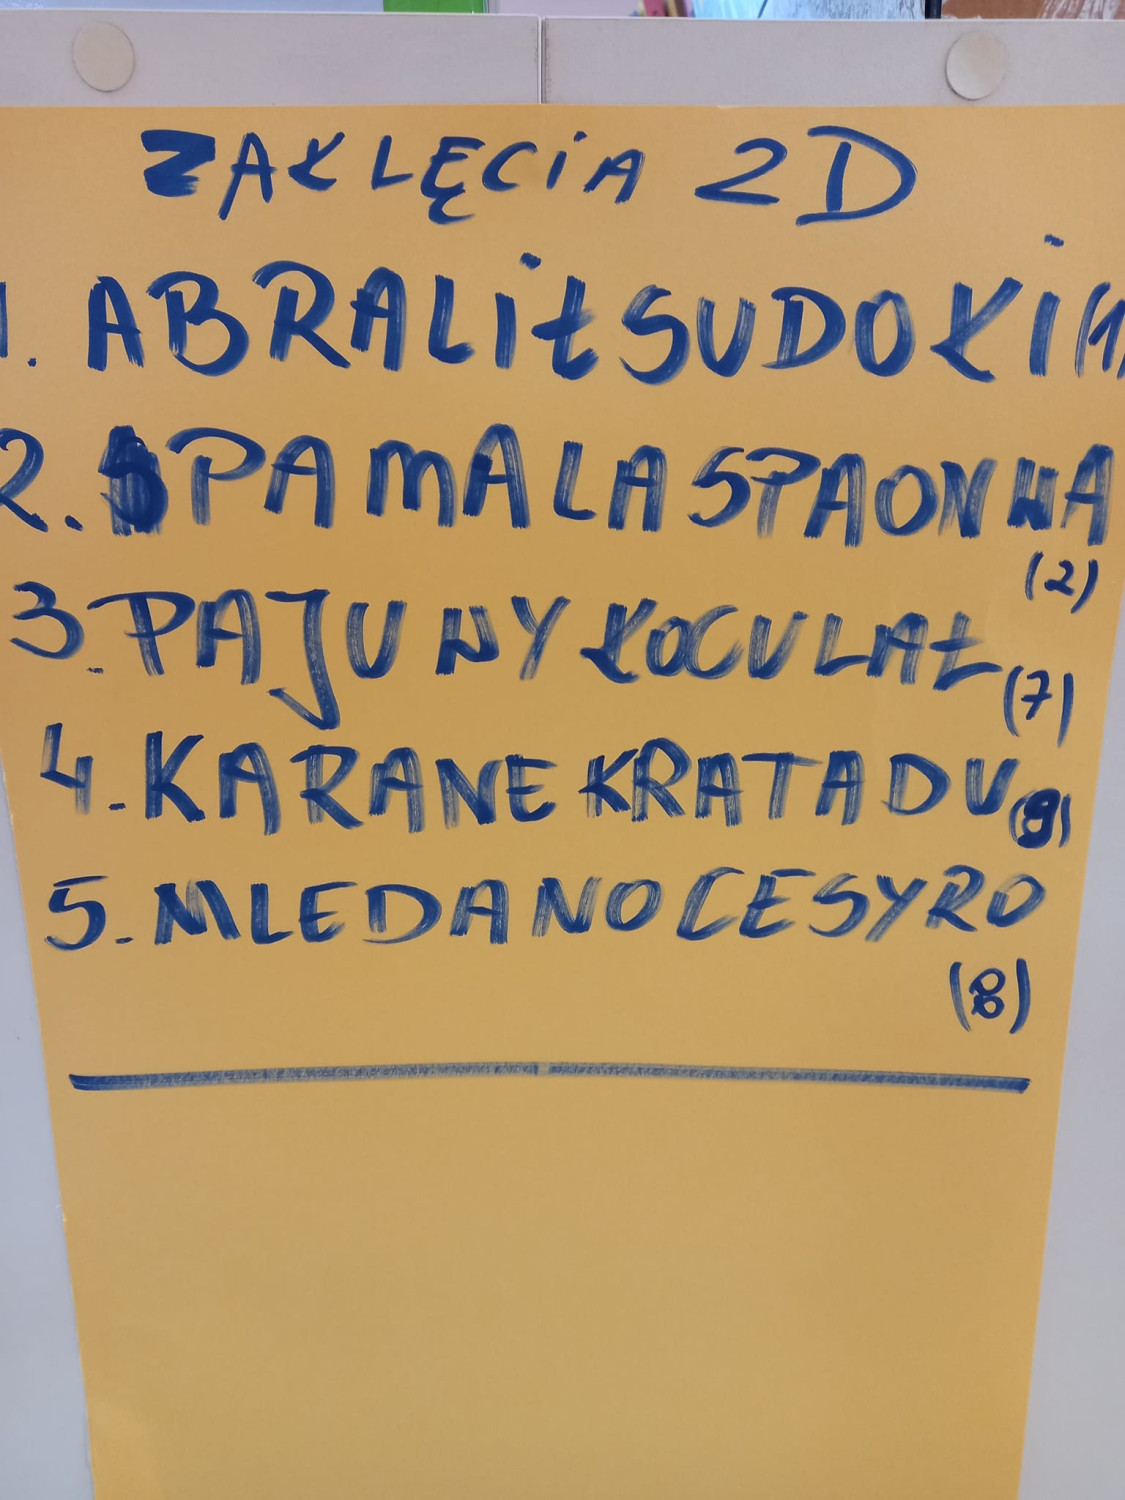 ZAKLĘCIA 2D
1. ABRALIŁSUDOKI (1)
2. SPAMALASPAONWA
(2)
3. PAJUNYKOCULAŁ (7)
4. KARANEKRATADU (9)
5. MLEDANOCESYRO
(8)